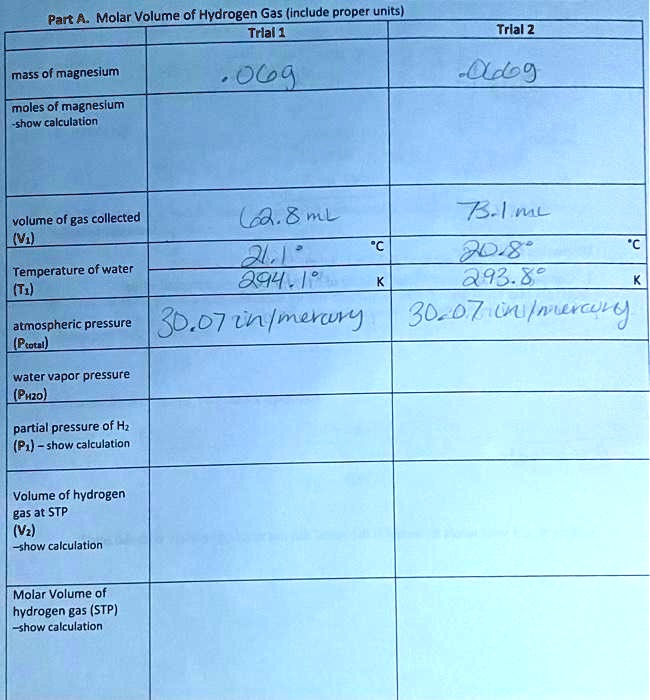 Part A. Molar Volume of Hydrogen Gas (include proper units)
Trial 1 Trial 2
mass of magnesium .06g .066g
moles of magnesium
-show calculation
volume of gas collected
(V₁) 62.8 mL 73.1 mL
Temperature of water
(T₁) 21.1° °C 20.8° °C
294.1° K 293.8° K
atmospheric pressure
(Ptotal) 30.07 in/mercury 30.07 in/mercury
water vapor pressure
(PH2O)
partial pressure of H₂
(P₁) – show calculation
Volume of hydrogen
gas at STP
(V₂)
–show calculation
Molar Volume of
hydrogen gas (STP)
–show calculation